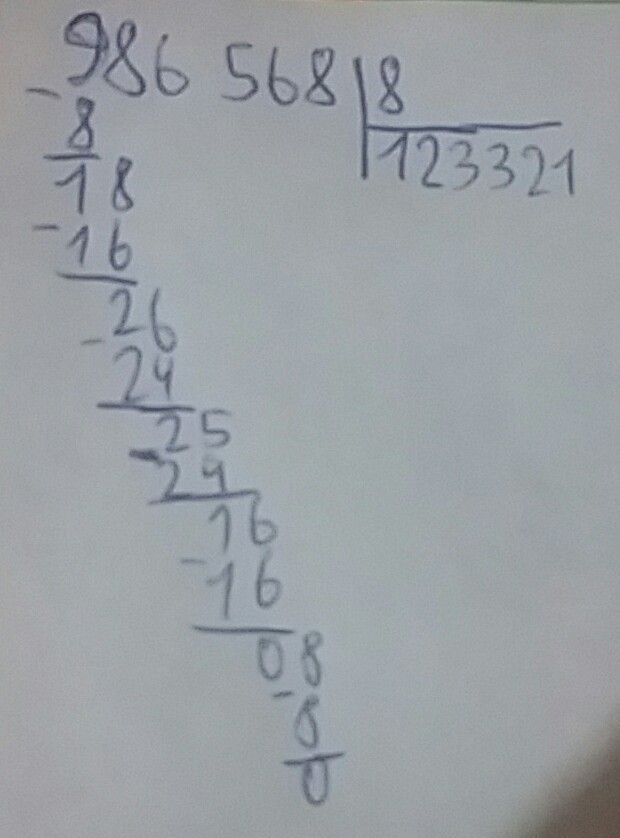 986 568 8
- 8 123321
18
- 16
26
- 24
25
- 24
16
- 16
08
- 8
0